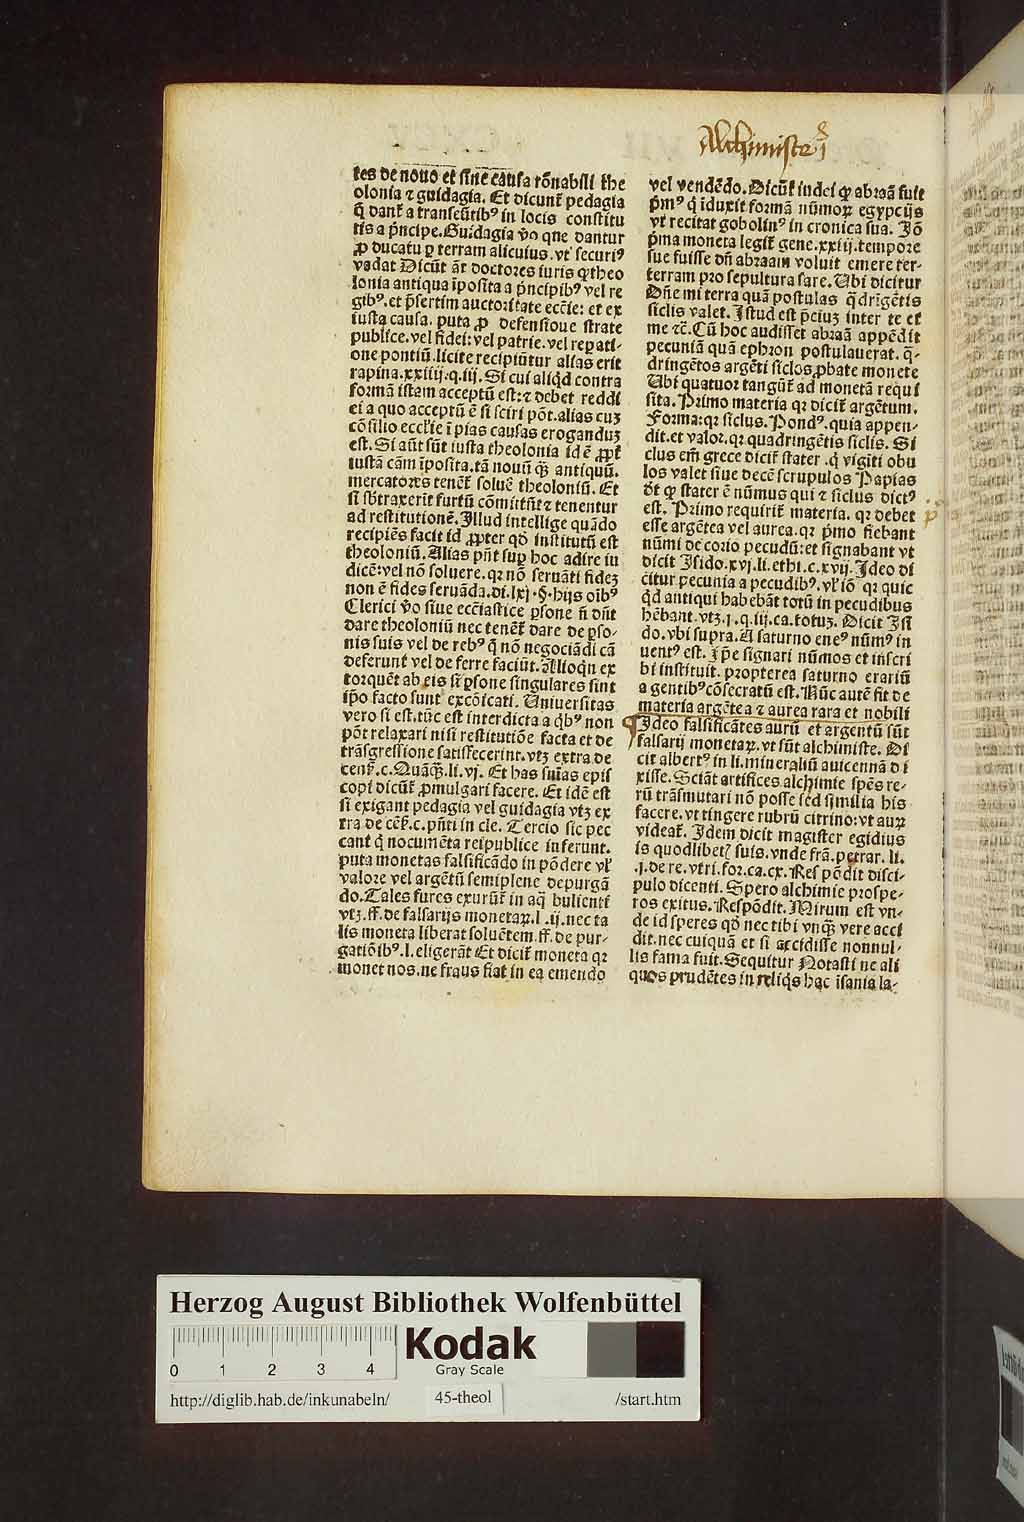 Alchimiste
tes de nouo et sine causa rōnabili the
olonia ⁊ guidagia. Et dicunt̄ pedagia
q̄ dant̄ a transeūtibꝰ in locis constitu
tis a pͥncipe. Guidagia v̊o que dantur
ꝓ ducatu ꝑ terram alicuius. vt securiꝰ
vadat Dicūt āt doctores iuris ꝙ theo
lonia antiqua īposita a pͥncipibꝰ vel re
gibꝰ. et p̄sertim auctoritate ecc̄ie: et ex
iusta causa. puta ꝓ defensione strate
publice. vel fidei: vel patrie. vel repati-
one pontiū. licite recipiūtur alias erit
rapina. xxiiij. q. iij. Si cui aliqd̄ contra
formā istam acceptū est: ⁊ debet reddi
ei a quo acceptū ē si sciri pōt. alias cuꝫ
cōsilio eccl̄ie ī pias causas eroganduꝫ
est. Si aūt sūt iusta theolonia id ē ꝓpt̄
iustā cām īposita. tā nouū qꝫ antiquū.
mercatores tenēt̄ soluē theoloniū. Et
si sbtraxerīt furtū cōmittūt ⁊ tenentur
ad restitutionē. Illud intellige quādo
recipiēs facit id ꝓpter qd̄ institutū est
theoloniū. Alias pn̄t suꝑ hoc adire iu
dicē: vel nō soluere. qꝛ nō seruāti fideꝫ
non ē fides seruāda. di. lxj. §. hijs oībꝰ
Clerici v̊o siue ecc̄iastice ꝑsone n̄ dn̄t
dare theoloniū nec tenēt̄ dare de ꝑso-
nis suis vel de rebꝰ q̄ nō negociādi cā
deferunt vel de ferre faciūt. Alioqn̄ ex
torquēt ab eis si ꝑsone singulares sint
ip̄o facto sunt excōicati. Uniuersitas
vero si est. tūc est interdicta a qͥbꝰ non
pōt relaxari nisi restitutiōe facta et de
trāsgressione satisfecerint. vtꝫ extra de
cenẜ. c. Quāqꝫ. li. vj. Et has sn̄ias epis
copi dicūt̄ ꝓmulgari facere. Et idē est
si exigant pedagia vel guidagia vtꝫ ex
tra de cēẜ. c. pn̄ti in cle. Tercio sic pec
cant q̄ nocumēta reipublice inferunt.
puta monetas falsificādo in pōdere vl̄
valore vel argētū semiplene depurgā
do. Tales fures exurūt̄ in aq̄ bulienti
vtꝫ. ff. de falsarijs monetaꝝ. l. ij. nec ta
lis moneta liberat soluētem. ff. de pur-
gatiōibꝰ. l. eligerāt Et dicit̄ moneta qꝛ
monet nos. ne fraus fiat in ea emendo
vel vendēdo. Dicūt̄ iudei ꝙ abraā fuit
pͥmꝰ q̄ īduxit formā nūmoꝝ egypcijs
vt recitat gobolinꝰ in cronica sua. Iō
pͥma moneta legit̄ gene. xxiij. tempore
sue fuisse dn̄ abraam voluit emere ter-
terram pro sepultura sare. Ubi dicitur
Dn̄e mi terra quā postulas q̄drīgētis
siclis valet. Istud est p̄ciuꝫ inter te et
me ⁊c̄. Cū hoc audisset abraā appēdit
pecuniā quā ephron postulauerat. q̄-
dringētos argēti siclos ꝓbate monete
Ubi quatuor tangūt̄ ad monetā requi
sita. Primo materia qꝛ dicit̄ argētum.
Forma: qꝛ siclus. Pondꝰ. quia appen-
dit. et valor. qꝛ quadringētis siclis. Si
clus em̄ grece dicit̄ stater. q̄ vigīti obu
los valet siue decē scrupulos Papias
dt̄ ꝙ stater ē nūmus qui ⁊ siclus dictꝰ
est. Primo requirit̄ materia. qꝛ debet
esse argētea vel aurea. qꝛ pͥmo fiebant
nūmi de corio pecudū: et signabant vt
dicit Isido. xvj. li. ethi. c. xvij. Ideo di
citur pecunia a pecudibꝰ. vl̄ iō qꝛ quic
qd̄ antiqui habebāt totū in pecudibus
hēbant. vtꝫ. j. q. iij. ca. totuꝫ. Dicit Isi
do. vbi supra. A saturno eneꝰ nūmꝰ in
uentꝰ est. Ip̄e signari nūmos et inscri
bi instituit. propterea saturno erariū
a gentibꝰ cōsecratū est. Nūc autē fit de
materia argētea ⁊ aurea rara et nobili
Ideo falsificātes aurū et argentū sūt
falsarij monetaꝝ. vt sūt alchimiste. Di
cit albertꝰ in li. mineraliū auicennā di
xisse. Sciāt artifices alchimie spēs re-
rū trāsmutari nō posse sed similia his
facere. vt tingere rubrū citrino: vt auꝝ
videat̄. Idem dicit magister egidius
is quodlibetꝭ suis. vnde frā. petrar. li.
.j. de re. vtri. for. ca. cx. Respōdit disci-
pulo dicenti. Spero alchimie prospe-
ros exitus. Respōdit. Mirum est vn-
de id speres qd̄ nec tibi vnqꝫ vere acci
dit. nec cuiquā et si accidisse nonnul-
lis fama fuit. Sequitur Notasti ne ali
quos prudētes in reliqͥs hac īsania la-
Herzog August Bibliothek Wolfenbüttel
0 1 2 3 4
Kodak
Gray Scale
http://diglib.hab.de/inkunabeln/ 45-theol /start.htm